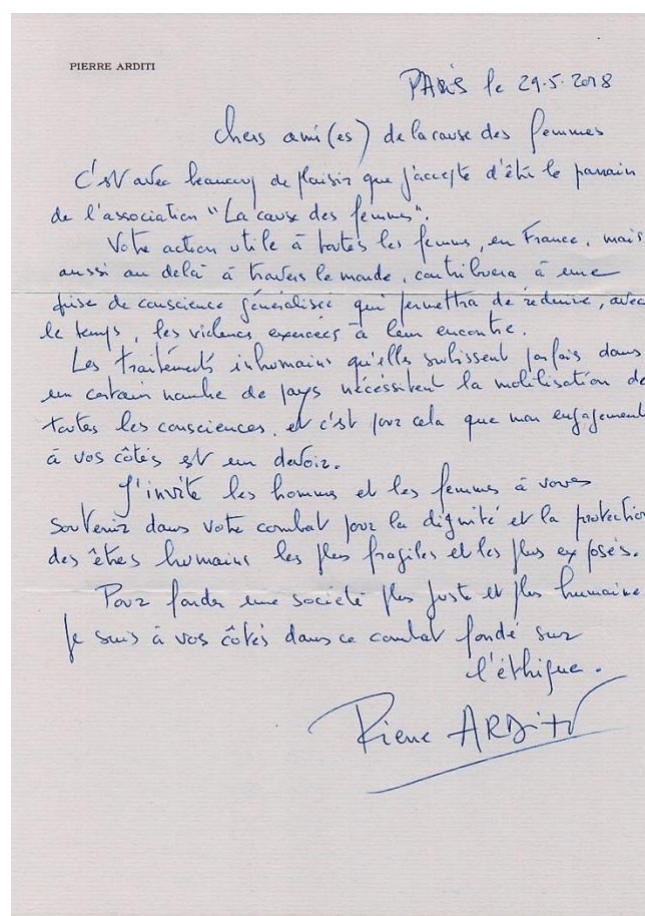 PIERRE ARDITI
PARIS le 29.5.2018
Chers ami(es) de la cause des femmes
C'est avec beaucoup de plaisir que j'accepte d'être le parrain
de l'association "La cause des femmes".
Votre action utile à toutes les femmes, en France, mais
aussi au delà à travers le monde, contribuera à une
prise de conscience généralisée qui permettra de réduire, avec
le temps, les violences exercées à leur encontre.
Les traitements inhumains qu'elles subissent parfois dans
un certain nombre de pays nécessitent la mobilisation de
toutes les consciences, et c'est pour cela que mon engagement
à vos côtés est un devoir.
J'invite les hommes et les femmes à vous
soutenir dans votre combat pour la dignité et la protection
des êtres humains les plus fragiles et les plus exposés.
Pour fonder une société plus juste et plus humaine
je suis à vos côtés dans ce combat fondé sur
l'éthique.
Pierre ARDITI